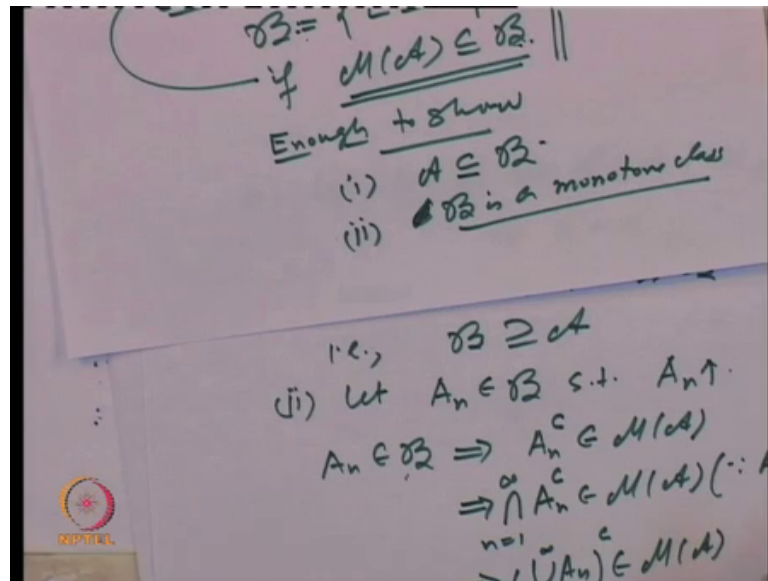 ℬ := {
if ℳ(𝒜) ⊆ ℬ. ||
Enough to show
(i) 𝒜 ⊆ ℬ.
(ii) ℬ is a monotone class
i.e., ℬ ⊇ 𝒜
(ii) Let Aₙ ∈ ℬ s.t. Aₙ↑.
Aₙ ∈ ℬ ⇒ Aₙᶜ ∈ ℳ(𝒜)
⇒ ⋂ₙ₌₁^∞ Aₙᶜ ∈ ℳ(𝒜) (∵ A
(⋃^∞ Aₙ)ᶜ ∈ ℳ(𝒜)
NPTEL